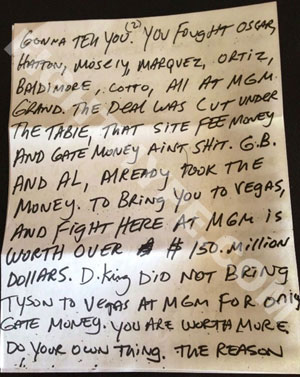 (2)
GONNA TELL YOU. YOU FOUGHT OSCAR,
HATTON, MOSELY, MARQUEZ, ORTIZ,
BALDIMORE, COTTO, ALL AT MGM
GRAND. THE DEAL WAS CUT UNDER
THE TABLE, THAT SITE FEE MONEY
AND GATE MONEY AINT SHIT. G.B.
AND AL, ALREADY TOOK THE
MONEY. TO BRING YOU TO VEGAS,
AND FIGHT HERE AT MGM IS
WORTH OVER $150. MILLION
DOLLARS. D. KING DID NOT BRING
TYSON TO VEGAS AT MGM FOR ONLY
GATE MONEY. YOU ARE WORTH MORE.
DO YOUR OWN THING. THE REASON